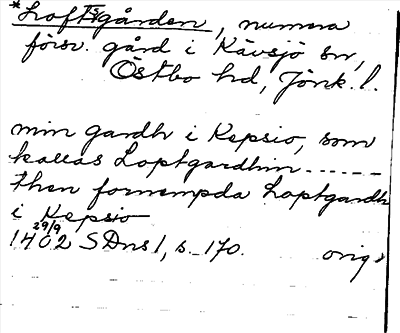 *Loftsgården, numera
försv. gård i Kävsjö sn,
Östbo hd, Jönk. l.
min gardh i Kepsio, som
kallas Loptgardhin -----
then fornempda Loptgardh
i Kepsio
29/9
1402 SDns 1, s. 170. orig.